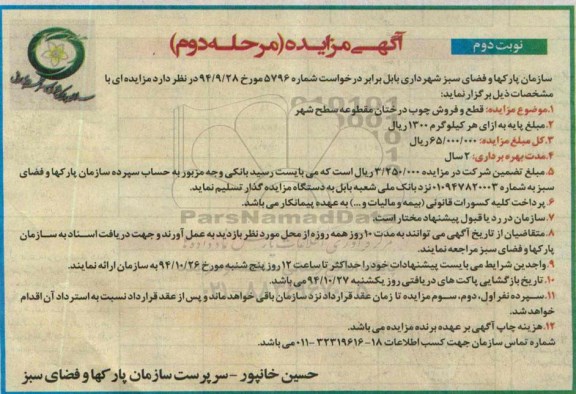 نوبت دوم
آگهی مزایده (مرحله دوم)
سازمان پارکها و فضای سبز شهرداری بابل برابر درخواست شماره ۵۷۹۶ مورخ ۹۴/۹/۲۸ در نظر دارد مزایده ای با
مشخصات ذیل برگزار نماید:
۱.موضوع مزایده: قطع و فروش چوب درختان مقطوعه سطح شهر
۲.مبلغ پایه به ازای هر کیلوگرم ۱۳۰۰ ریال
۳.کل مبلغ مزایده: ۶۵/۰۰۰/۰۰۰ ریال
۴.مدت بهره برداری: ۲ سال
۵. مبلغ تضمین شرکت در مزایده ۳/۲۵۰/۰۰۰ ریال است که می بایست رسید بانکی وجه مزبور به حساب سپرده سازمان پارکها و فضای
سبز به شماره ۰۱۰۹۴۷۸۲۰۰۰۳ نزد بانک ملی شعبه بابل به دستگاه مزایده گذار تسلیم نماید.
۶. پرداخت کلیه کسورات قانونی (بیمه و مالیات و...) به عهده پیمانکار می باشد.
۷.سازمان در رد یا قبول پیشنهاد مختار است.
۸. متقاضیان از تاریخ آگهی می توانند به مدت ۱۰ روز همه روزه از محل مورد نظر بازدید به عمل آورند و جهت دریافت اسناد به سازمان
پارکها و فضای سبز مراجعه نمایند.
۹. واجدین شرایط می بایست پیشنهادات خود را حداکثر تا ساعت ۱۲ روز پنج شنبه مورخ ۹۴/۱۰/۲۶ به سازمان ارائه نمایند.
۱۰. تاریخ بازگشایی پاکت های دریافتی روز یکشنبه ۹۴/۱۰/۲۷ می باشد.
۱۱. سپرده نفر اول، دوم، سوم مزایده تا زمان عقد قرارداد نزد سازمان باقی خواهد ماند و پس از عقد قرارداد نسبت به استرداد آن اقدام
خواهد شد.
۱۲. هزینه چاپ آگهی بر عهده برنده مزایده می باشد.
شماره تماس سازمان جهت کسب اطلاعات ۱۸-۳۲۳۱۹۶۱۶-۰۱۱ می باشد.
حسین خانپور - سرپرست سازمان پارکها و فضای سبز
ParsNamadData